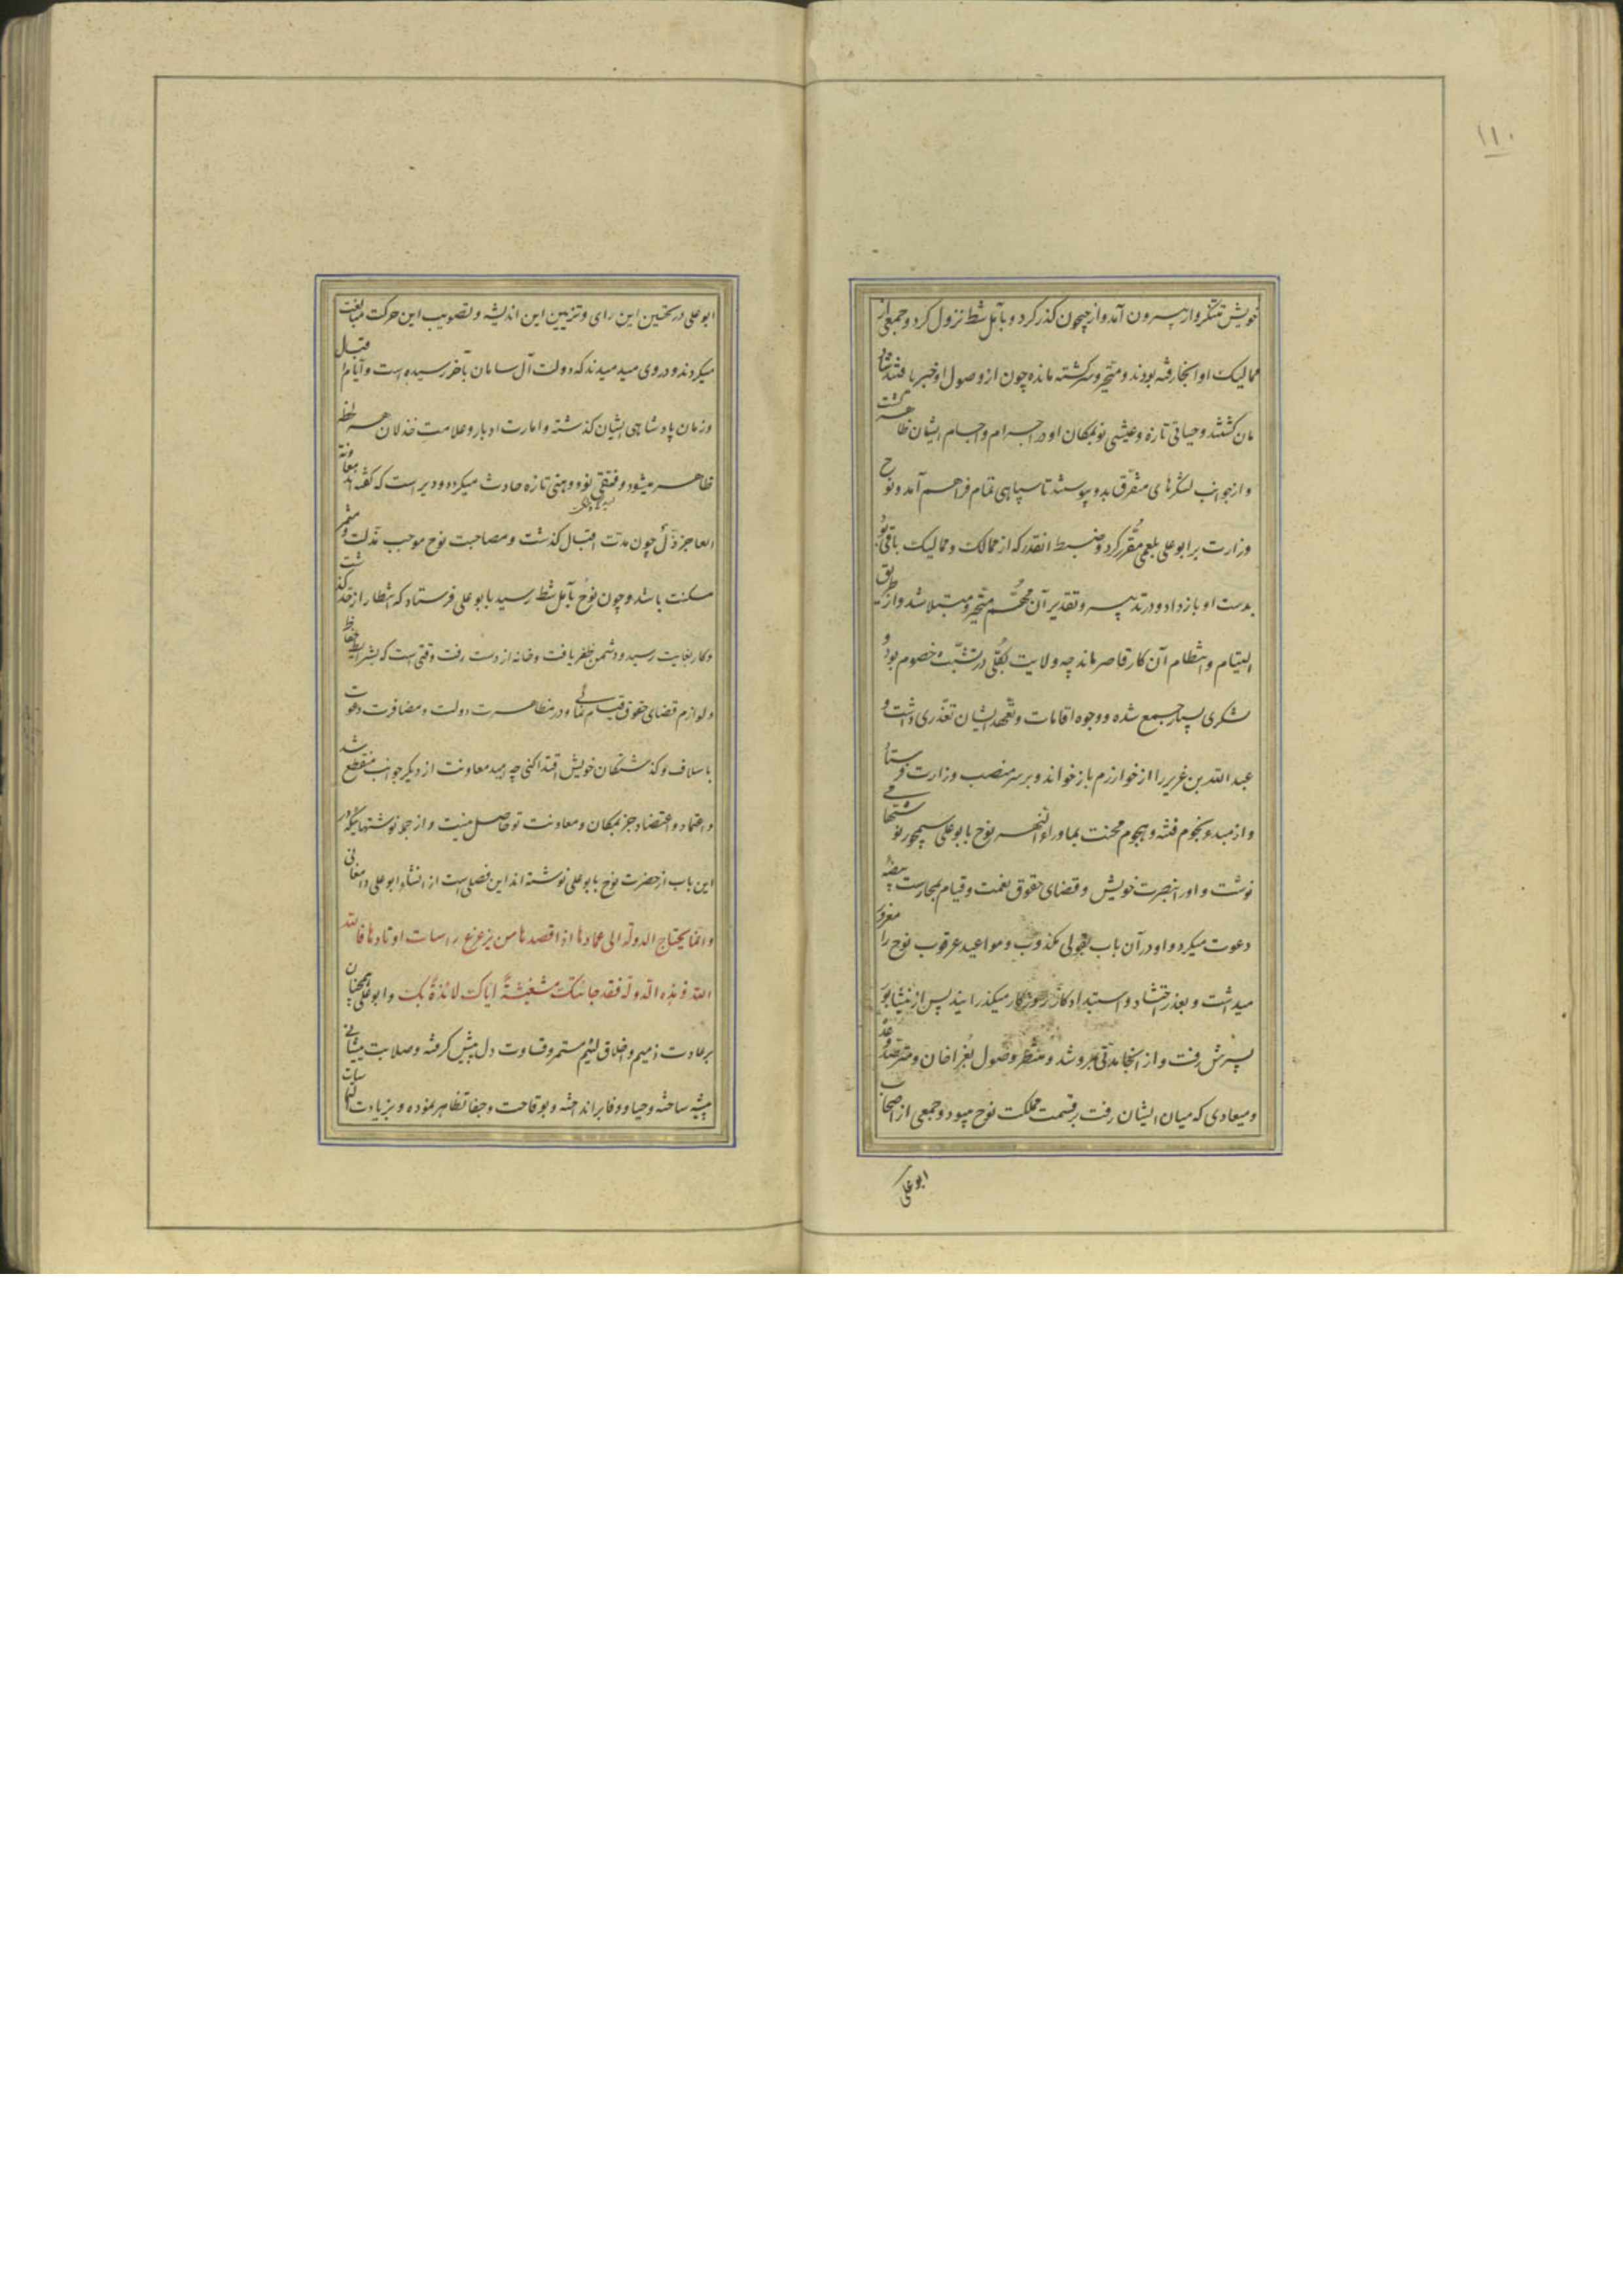 ١١٠
خویش متنکروار بیرون آمد و از جیحون گذر کرد و بآمل شط نزول کرد و جمعی از
ممالیک او آنجا رفته بودند و متحیر و سرگشته مانده چون از وصول او خبر یافتند شاد
مان گشتند و حیاتی تازه و عیشی نو بمکان او در اجرام و اجسام ایشان ظاهر گشت
و از جوانب لشکرهای متفرق بدو پیوستند تا سپاهی تمام فراهم آمد و نوح
وزارت بر ابو علی بلعمی مقرر کرد و ضبط انقدر که از ممالک و ممالیک باقی بود
بدست او باز داد و در تدبیر و تقدیر آن متحیر و مبتلا شد و از طریق
التیام و انتظام آن کار قاصر ماند چه ولایت بکلی در تشبث خصوم بود و
لشکری بسیار جمع شده و وجوه اقامات و تعهد ایشان تعذری داشت و
عبد الله بن عزیر را از خوارزم باز خواند و بر سر منصب وزارت فرستاد
و از مبدء نجوم فتنه و هجوم محنت بماوراء النهر نوح بابو علی سیمجور نوشتها می
نوشت و او را بنصرت خویش و قضای حقوق نعمت و قیام بحراست بیضه
دعوت میکرد و او در آن باب بقولی مکذوب و مواعید عرقوب نوح را مغرور
میداشت و بعذر احتشاد و استبداد کار روزگار میگذرانید پس از نیشابور
بسرخس رفت و از آنجا مدتی بمرو شد و منتظر وصول بغراخان و مترصد وعد
و میعادی که میان ایشان رفت بر قسمت مملکت نوح میبود و جمعی از اصحاب
ابو علی
ابو علی در تحسین این رای و تزیین این اندیشه و تصویب این حرکت مبالغت
میکردند و در وی میدمیدند که دولت آل سامان بآخر رسیده است و ایام اقبال
و زمان پادشاهی ایشان گذشته و امارت ادبار و علامت خذلان هر لحظه
ظاهر میشود و فتقی نو و وهنی تازه حادث میگردد و دیر است که گفته اند معاونة
العاجز ذل چون مدت اقبال گذشت و مصاحبت نوح موجب مذلت و مثمر
مسکنت باشد و چون نوح بآمل شط رسید بابو علی فرستاد که انتظار از حد گذشت
و کار بغایت رسید و دشمن ظفر یافت و خانه از دست رفت وقتی است که بشرایط حفاظ
و لوازم قضای حقوق قیام نمائی و در مظاهرت دولت و مضافرت دعوت
باسلاف و گذشتگان خویش اقتدا کنی چه امید معاونت از دیگر جوانب منقطع شد
و اعتماد و اعتضاد جز بمکان و معاونت تو حاصل نیست و از جمله نوشتهائیکه در
این باب از حضرت نوح بابو علی نوشته اند این فصلی است از انشاء ابو علی دامغانی
و انما یحتاج الدولة الی عمادها اذا قصدها من یزعزع راسیات اوتادها فالله
الله فی هذه الدولة فقد جائتک مستغیثة ایاک لائذة بک و ابو علی همچنان
بر عادت ذمیم و اخلاق لئیم مستمر و قساوت دل پیش گرفته و صلابت پیشانی
پیشه ساخته و حیا و وفا بر انداخته و بوقاحت و جفا تظاهر نموده و بزیادت التماسات